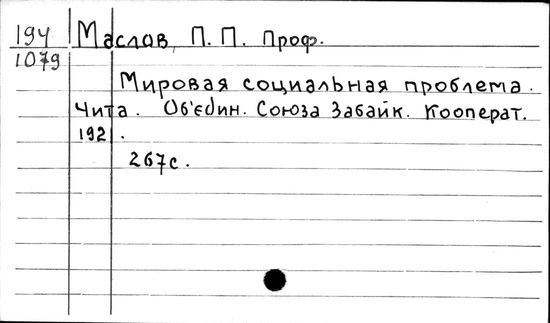 194 Маслов, П. П. Проф.
1079
Мировая социальная проблема.
Чита. Об'един. Союза Забайк. Кооперат.
192 .
267с.